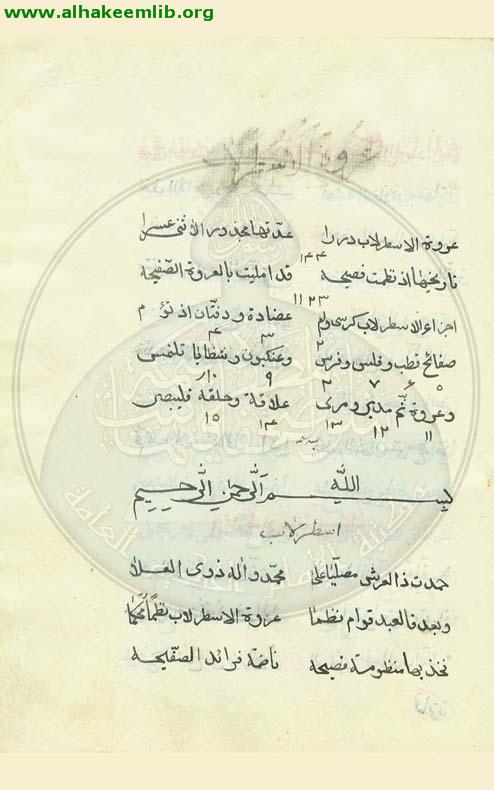 www.alhakeemlib.org
عروة الاسطرلاب
عروة الاسطرلاب دررا عدتها مجذور الاثنى عشرا
١٤٤
تاريخها اذ نظمت فصيحه قد امليت بالعروة الصفيحه
١١٢٣
اجزاء الاسطرلاب كرسى ولم عضادة ودفتان اذ تؤم
٢ ٣ ٤
صفائح قطب وفلس وفرس وعنكبوت وشظايا
٥ ٦ ٧ ٢ ٩ ١٠
وعروة ثم مدير ومرى علاقة وحلقة
١١ ١٢ ١٣ ١٤ ١٥
بسم الله الرحمن الرحيم
اسطرلاب
حمدت ذا العرش مصليا على محمد واله ذوى العلا
وبعد فالعبد قوام نظما عروة الاسطرلاب نظما محكما
فخذ بها منظومة فصيحه ناظمة فرائد الصفيحه